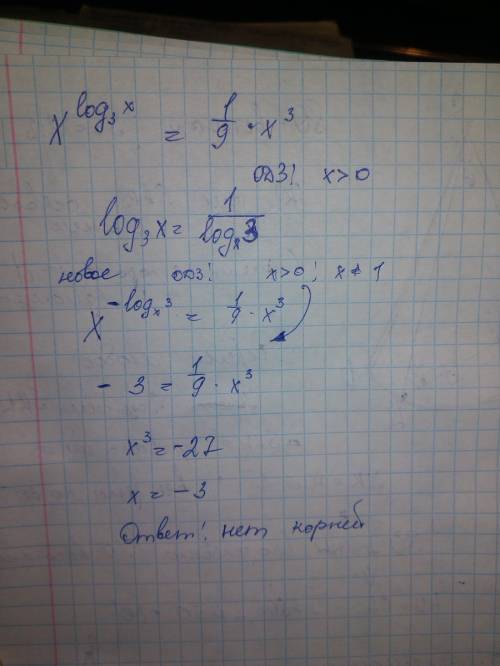 x^{log_3 x} = 1/9 · x^3
ОДЗ! x > 0
log_3 x = 1/log_x 3
новое ОДЗ! x > 0 ; x ≠ 1
x^{-log_x 3} = 1/9 · x^3
- 3 = 1/9 · x^3
x^3 = -27
x = -3
Ответ! нет корней